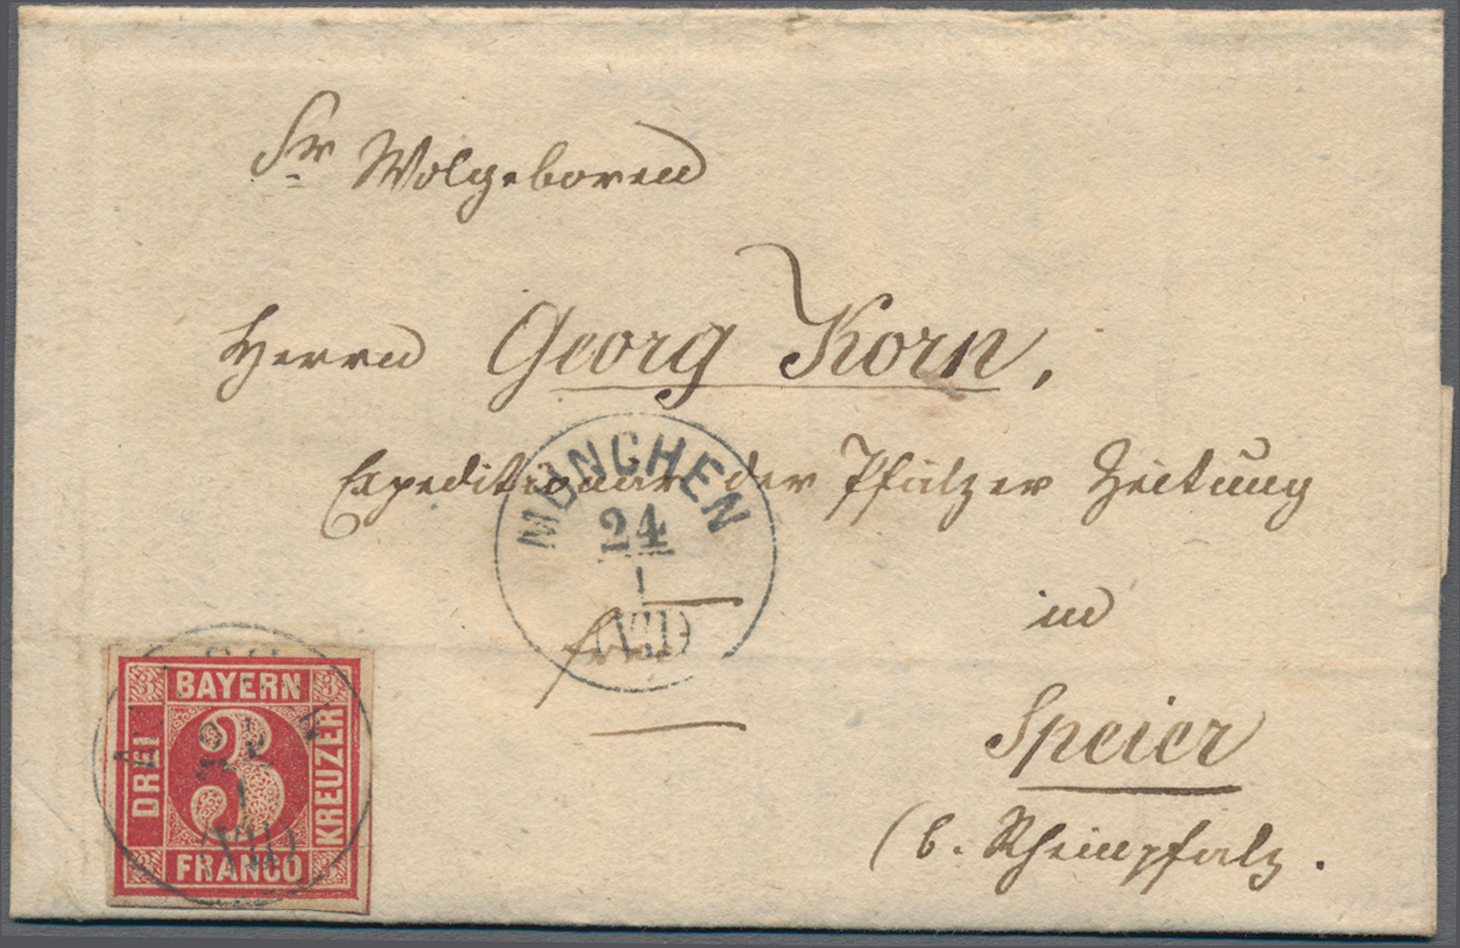 Sr Wolgeboren
Herrn Georg Korn,
Expeditionär der Pfälzer Zeitung
in
fro
Speier
(b. Rheinpfalz.
MÜNCHEN
24
1
(VII)
BAYERN
DREI
3
KREUZER
FRANCO
3
3
3
3
1
(VII)